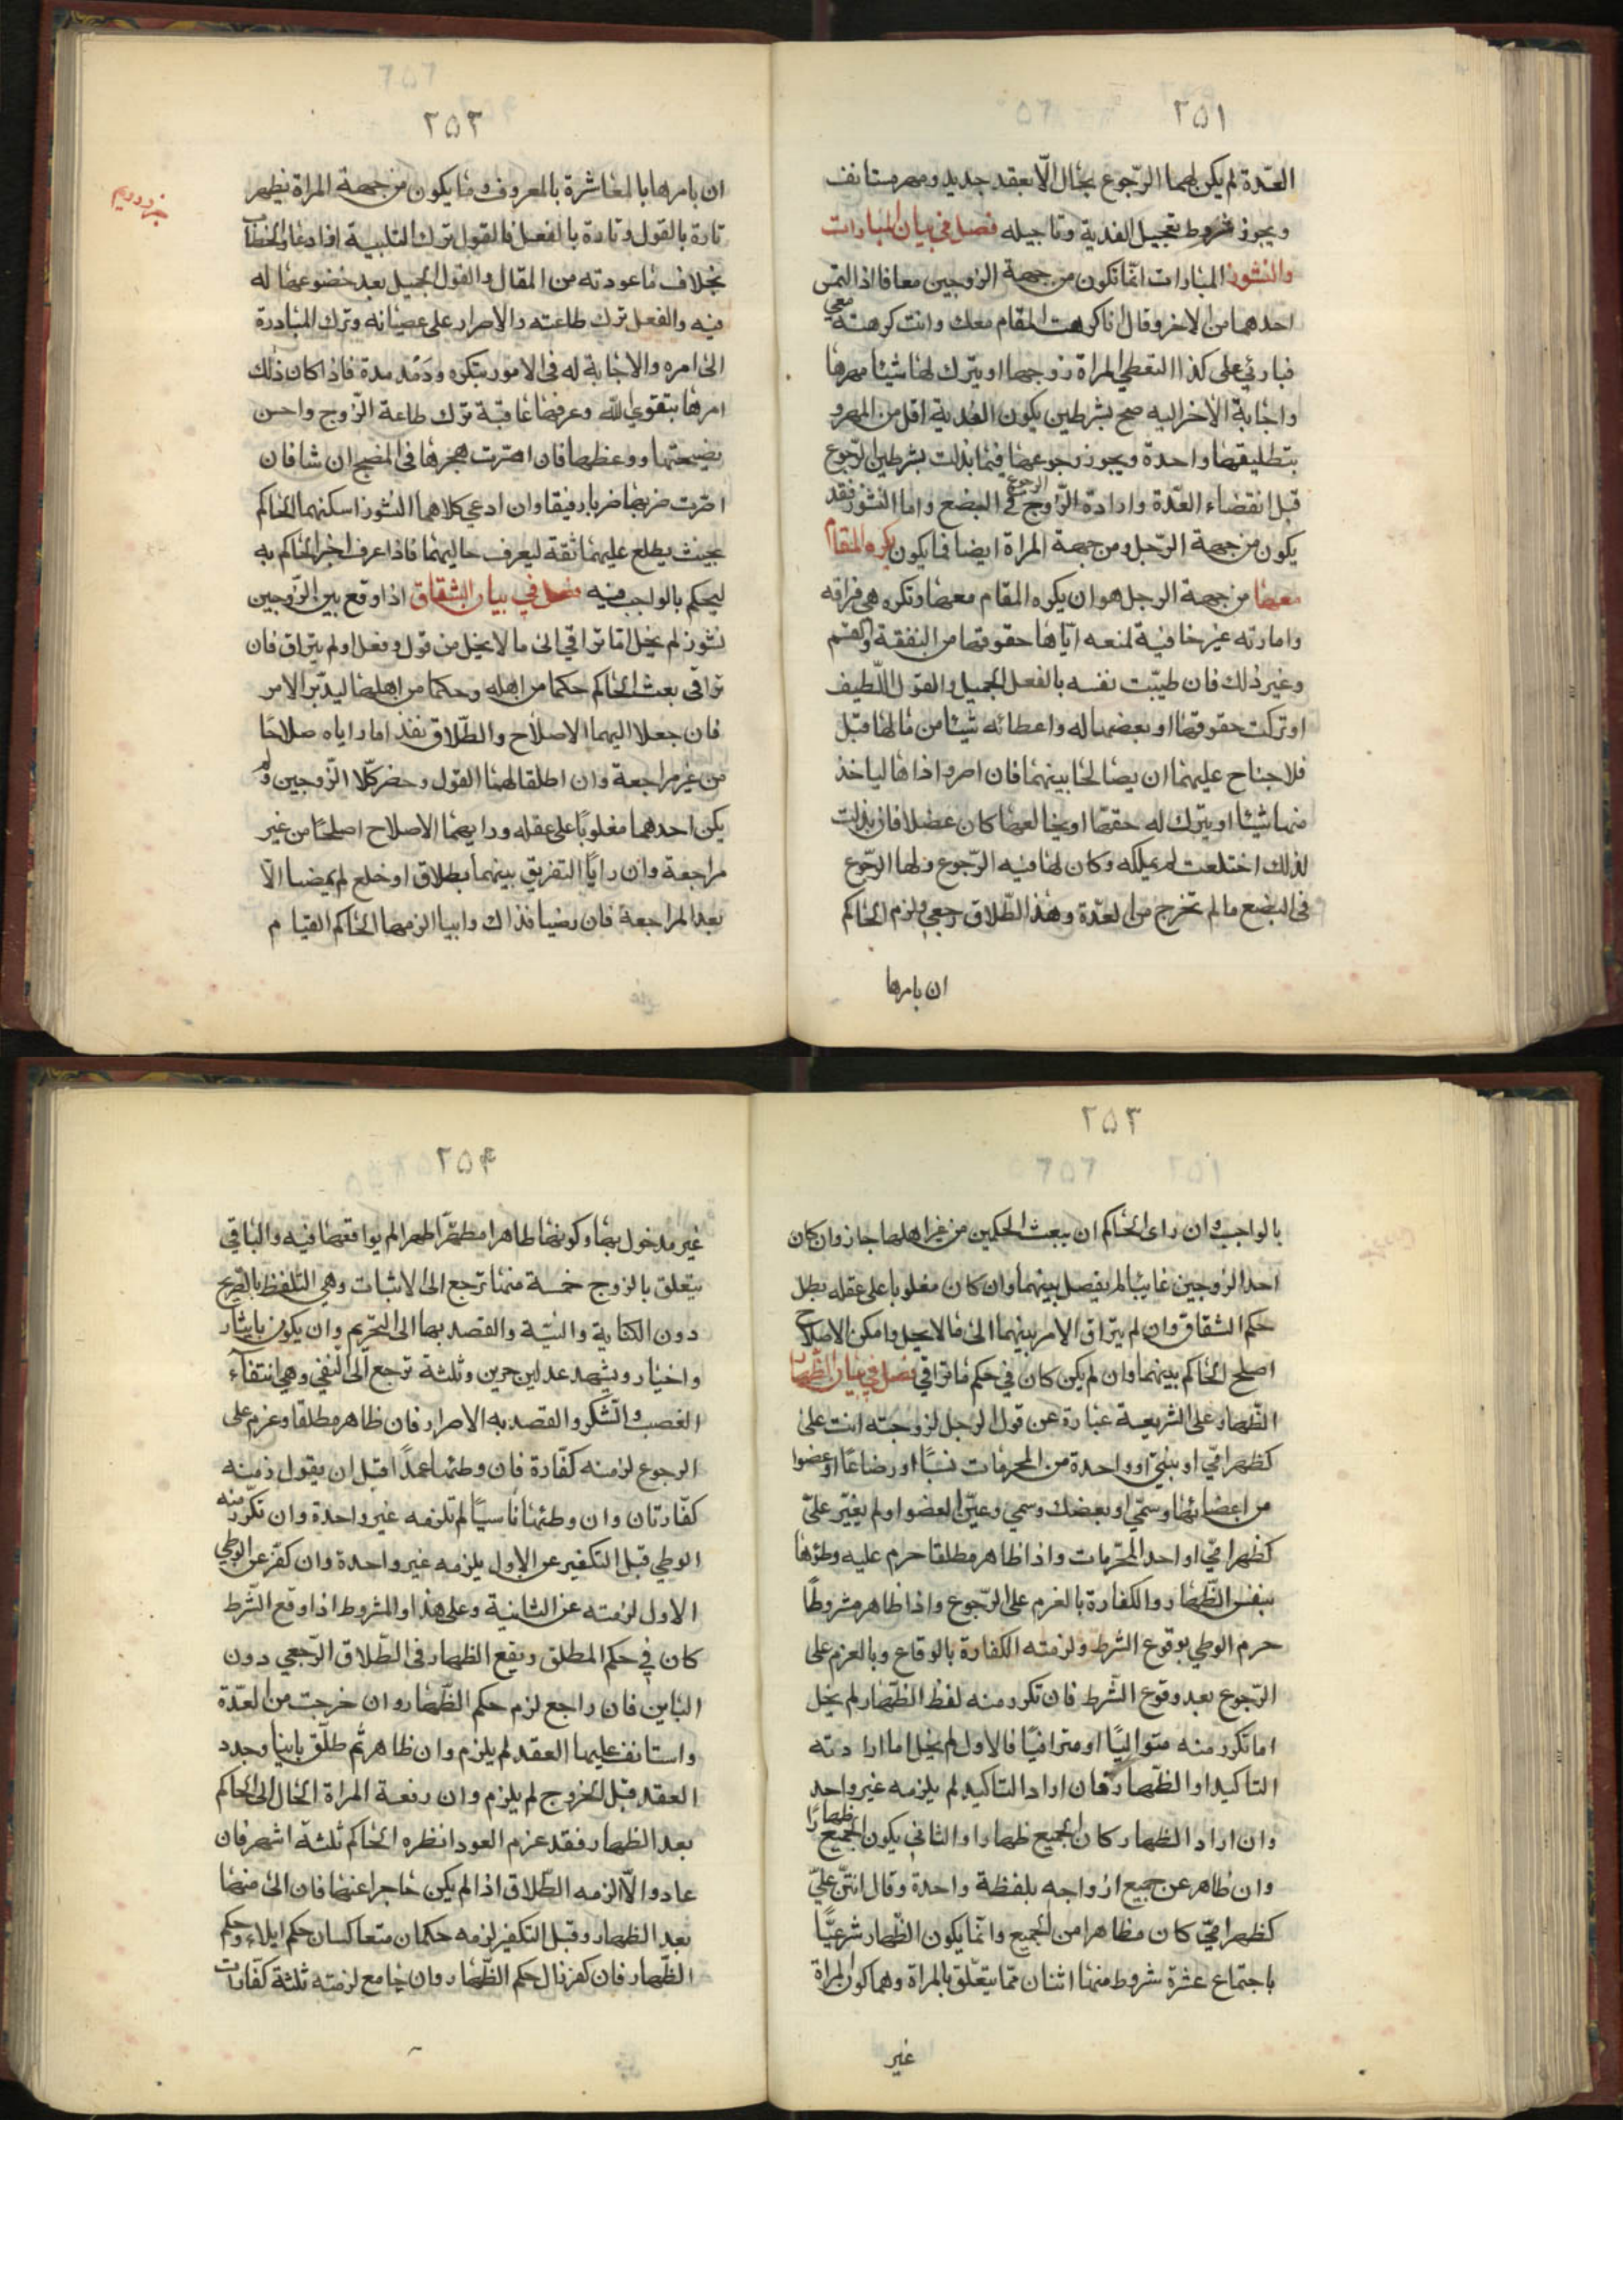 ٢٥١
العدّة لم يكن لهما الرّجوع بحال الّا بعقد جديد ومهر مستأنف
ويجوز شروط تعجيل الفدية وتاجيله فصل في بيان المبارات
والنشوز المبارات انّما تكون من جهة الزوجين معا فاذا التمس
احدهما من الاخر وقال انا كرهت المقام معك وانت كرهته معي
فبارئي على كذا التعطي المراة زوجها او يترك لها شيئا مهرها
واجابة الاخر اليه صحّ بشرطين يكون الفدية اقل من المهر و
بتطليقها واحدة ويجوز رجوعها فيما بذلت بشرطين الرّجوع
قبل انقضاء العدّة وارادة الزّوج الرجوع في البضع واما النشوز فقد
يكون من جهة الرّجل ومن جهة المراة ايضا فما يكون يكره المقام
معها من جهة الرجل هو ان يكره المقام معها وتكره هي فراقه
وامارته غير خافية لمنعه ايّاها حقوقها من النفقة والقسم
وغير ذلك فان طيّبت نفسه بالفعل الجميل والقول اللّطيف
او تركت حقوقها او بعضها له واعطائه شيئا من مالها قبل
فلا جناح عليهما ان يصالحا بينهما فان اصرو اذاها لياخذ
منها شيئا او يترك له حقها او يخالعها كان عضلا فان بذلت
لذلك اختلعت لم يملكه وكان لها فيه الرّجوع ولها الرّجوع
في البضع ما لم تخرج من العدّة وهذا الطّلاق رجعي ولزم الحاكم
ان يامرها
٢٥٢
ان يامرها بالمعاشرة بالمعروف وما يكون من جهة المراة يظهر
تارة بالقول وتارة بالفعل فالقول ترك التلبية اذا دعا والخطاب
بخلاف ما عودته من المقال والقول الجميل بعد خضوعها له
فيه والفعل ترك طاعته والاصرار على عصيانه وترك المبادرة
الى امره والاجابة له في الامور بتكره ودَمْدمة فاذا كان ذلك
امرها بتقوي اللّه وعرفها عاقبة ترك طاعة الزّوج واحسن
نصيحتها ووعظها فان اصرت هجرها في المضجع ان شا فان
اصرت ضربها ضربا رفيقا وان ادعي كلاهما النشوز اسكنهما الحاكم
بحيث يطلع عليهما ثقة ليعرف حاليهما فاذا عرف اخبر الحاكم به
ليحكم بالواجب فيه فصل في بيان الشقاق اذا وقع بين الزوجين
نشوز لم يخل امّا ترا في الى ما لا يحل من قول وفعل او لم يتراق فان
ترا في بعث الحاكم حكما من اهله وحكما من اهلها ليدبّر الامر
فان جعلا اليهما الاصلاح والطّلاق نفذ اما راياه صلاحًا
من غير مراجعة وان اطلقا لهما القول وحضر كلا الزّوجين ولم
يكن احدهما مغلوبًا على عقله ورايهما الاصلاح اصلحا من غير
مراجعة وان رايًا التفريق بينهما بطلاق او خلع لم يمضيا الّا
بعد المراجعة فان رضيا فذاك وابيا الزمهما الحاكم القيام
٢٥٣
بالواجب وان راى الحاكم ان يبعث الحكمين من غير اهلهما جاز وان كان
احد الزوجين غايبًا لم يفصل بينهما وان كان مغلوبا على عقله بطل
حكم الشقاق وان لم يتراق الامر بينهما الى ما لا يحل وامكن الاصلاح
اصلح الحاكم بينهما وان لم يكن كان في حكم ما ترا في فصل في بيان الظّهار
الظّهار على الشريعة عبارة عن قول الرجل لزوجته انت على
كظهر امّي او بنتي او واحدة من المحرمات نسبًا او رضاعًا او عضوا
من اعضائها وسمّي او بعضك وسمي وعيّن العضو او لم يغيّر علىّ
كظهر امّي او احد المحرّمات واذا ظاهر مطلقا حرم عليه وطؤها
بنفس الظّهار والكفارة بالعزم على الرّجوع واذا ظاهر مشروطًا
حرم الوطي بوقوع الشرط ولزمته الكفارة بالوقاع وبالعزم على
الرّجوع بعد وقوع الشّرط فان تكرر منه لفظ الظّهار لم يخل
اما تكرر منه متواليًا او متراخيًا فالاول لم يخل اما ارادته
التاكيد او الظّهار فان اراد التاكيد لم يلزمه غير واحد
وان اراد الظهار كان الجميع ظهارا والثاني يكون الجميع ظهارًا
وان ظاهر عن جميع ازواجه بلفظة واحدة وقال انتنّ علىّ
كظهر امّي كان مظاهرا من الجميع وانّما يكون الظّهار شرعيًّا
باجتماع عشرة شروط منها اثنان ممّا يتعلّق بالمراة وهما كون المراة
غير
٢٥٤
غير مدخول بها وكونها طاهرا مطهّرا طهرا لم يواقعها فيه والباقي
يتعلق بالزوج خمسة منها ترجع الى الاثبات وهي التلفظ بالصّريح
دون الكناية والنيّة والقصد بها الى التحريم وان يكون بايثار
واختيار ويشهد عدلين حرين وثلثة ترجع الى النّفي وهي انتفاء
الغصب والسّكر والقصد به الاصرار فان ظاهر مطلقا وعزم على
الرجوع لزمنه كفّارة فان وطئها عمدًا قبل ان يقول زمنه
كفّارتان وان وطئها ناسيًا لم تلزمه غير واحدة وان تكرّر منه
الوطي قبل التكفير عن الاول يلزمه غير واحدة وان كفّر عن الوطي
الاول لزمته عن الثانية وعلى هذا والمشروط اذا وقع الشّرط
كان في حكم المطلق ويقع الظهار في الطّلاق الرّجعي دون
الباين فان راجع لزم حكم الظّهار وان خرجت من العدّة
واستانف عليها العقد لم يلزم وان ظاهر ثم طلّق باينا وجدد
العقد قبل الخروج لم يلزم وان رفعة المراة الحال الى الحاكم
بعد الظهار فقد عزم العود انظره الحاكم ثلثة اشهر فان
عاد والّا الزمه الطّلاق اذا لم يكن عاجرا عنها فان الى منها
بعد الظهار وقبل التكفير لزمه حكمان متعاكسان حكم ايلاء وحكم
الظّهار فان كفر زال حكم الظّهار وان جامع لزمته ثلثة كفّارات